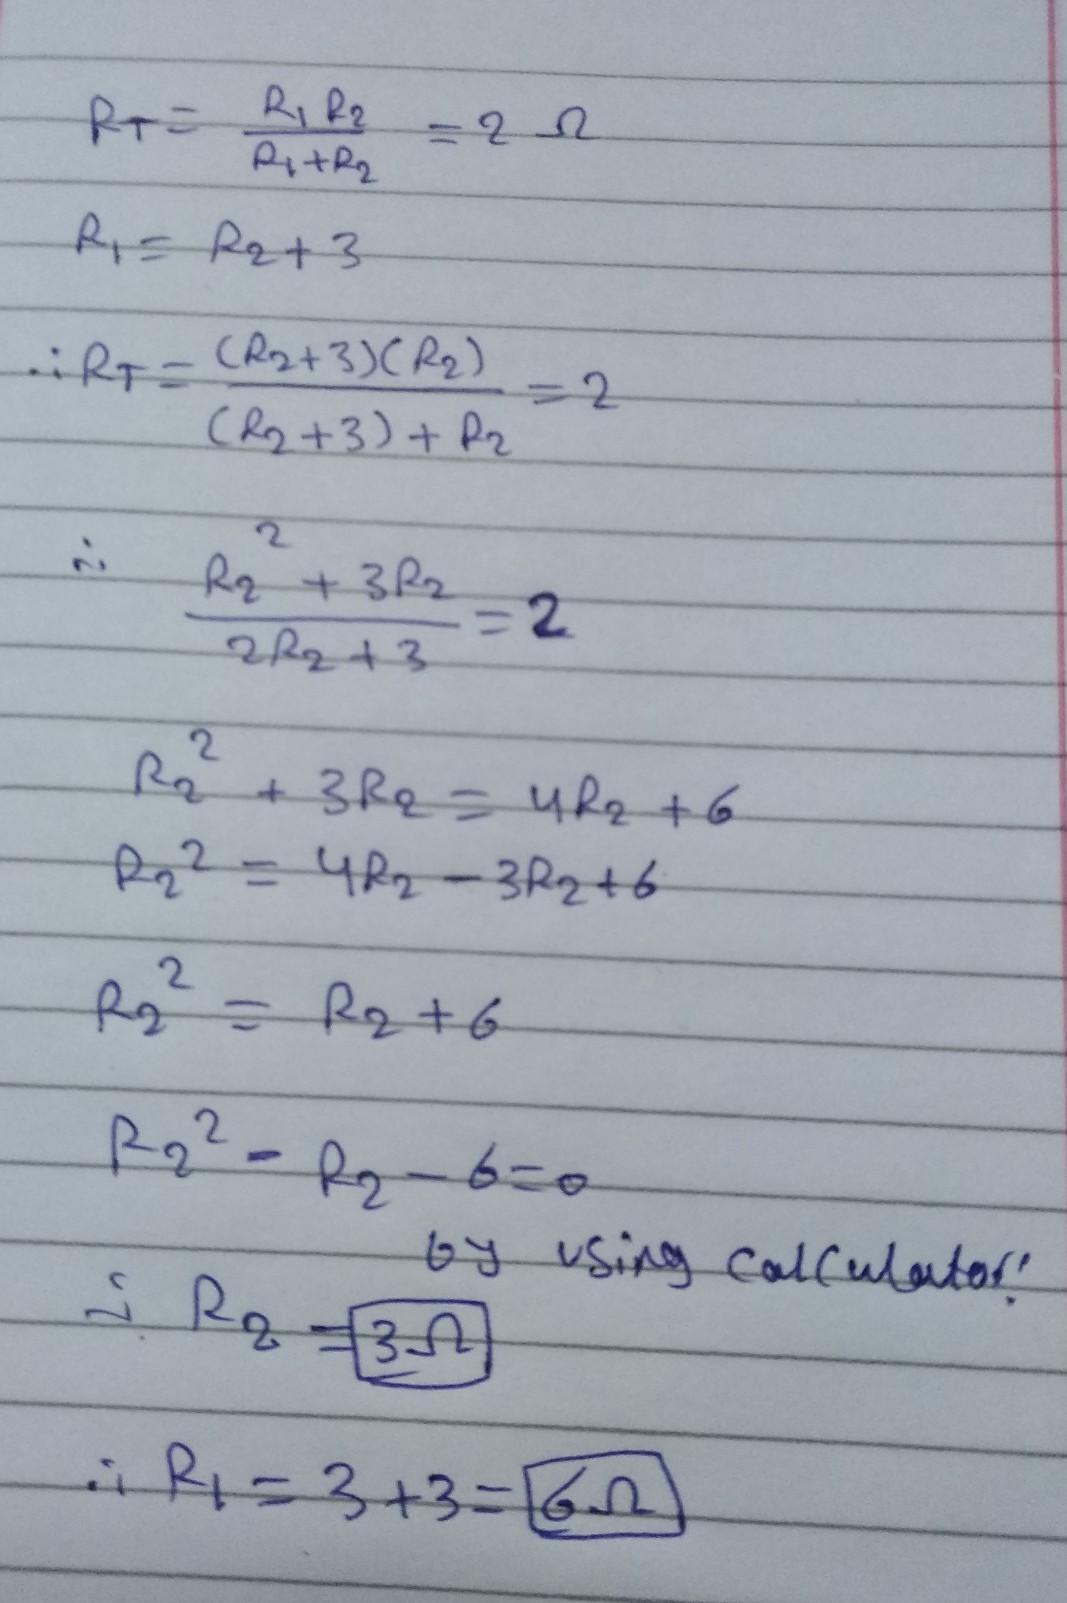 R_T = R₁ R₂ / R₁+R₂ = 2 Ω
R₁ = R₂ + 3
∴ R_T = (R₂+3)(R₂) / (R₂+3) + R₂ = 2
∴ R₂² + 3R₂ / 2R₂ + 3 = 2
R₂² + 3R₂ = 4R₂ + 6
R₂² = 4R₂ - 3R₂ + 6
R₂² = R₂ + 6
R₂² - R₂ - 6 = 0
by using calculator!
∴ R₂ = 3Ω
∴ R₁ = 3 + 3 = 6Ω